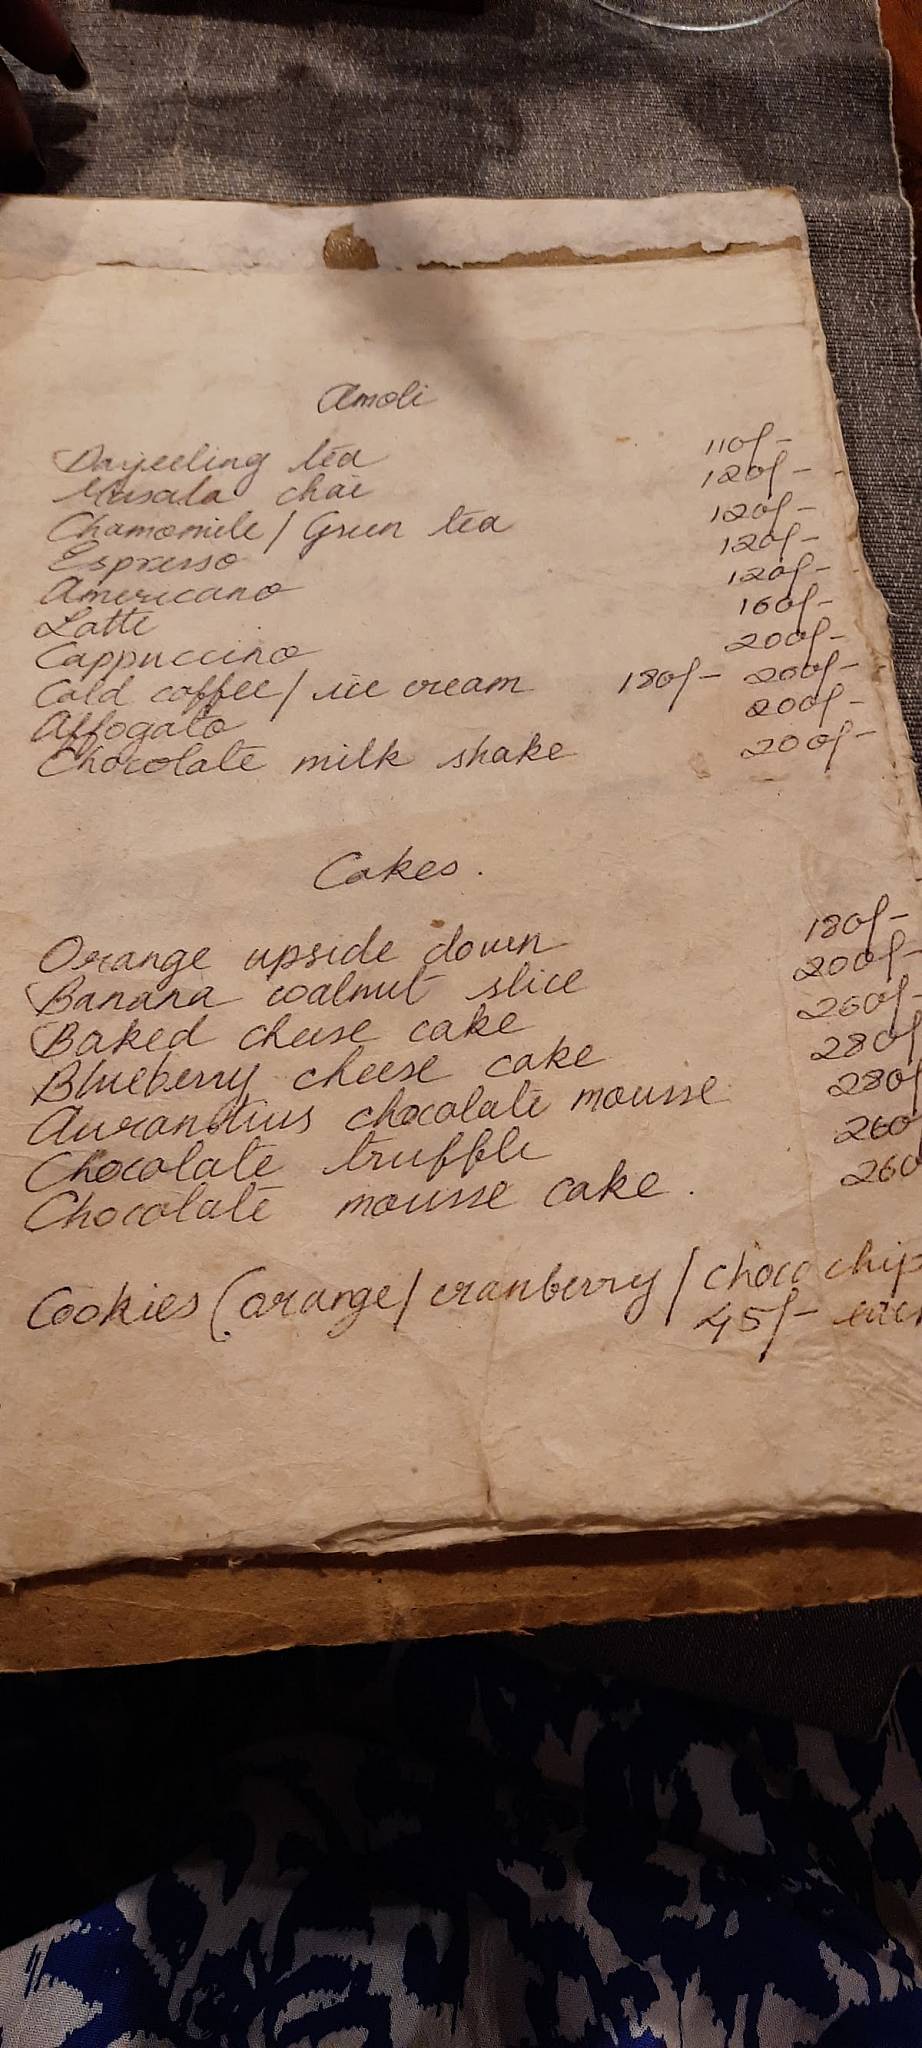 Amoli
Darjeeling tea 110/-
Masala chai 120/-
Chamomile / Green tea 120/-
Espresso 120/-
Americano 120/-
Latte 160/-
Cappuccino 200/-
Cold coffee / ice cream 180/- 200/-
Affogato 200/-
Chocolate milk shake 200/-
Cakes.
Orange upside down 180/-
Banana walnut slice 200/-
Baked cheese cake 260/-
Blueberry cheese cake 280/
Aurantius chocolate mousse 280/
Chocolate truffle 260
Chocolate mousse cake. 260
Cookies (orange / cranberry / choco chip
45/- each